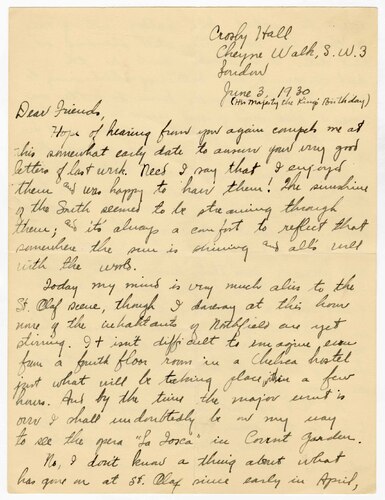 Crosby Hall
Cheyne Walk, S.W. 3
London
June 3, 1930
(His Majesty the King's Birthday)
Dear Friends,
Hope of hearing from you again compels me at
this somewhat early date to answer your very good
letters of last week. Need I say that I enjoyed
them and was happy to have them! The sunshine
of the South seemed to be streaming through
them; and it's always a comfort to reflect that
somewhere the sun is shining and all's well
with the world.
Today my mind is very much alive to the
St. Olaf scene, though I daresay at this hour
none of the inhabitants of Northfield are yet
stirring. It isn't difficult to imagine even
from a fourth floor room in a Chelsea hostel
just what will be taking place in a few
hours. And by the time the major event is
over I shall undoubtedly be on my way
to see the opera "La Tosca" in Covent Garden.
No, I don't know a thing about what
has gone on at St. Olaf since early in April,